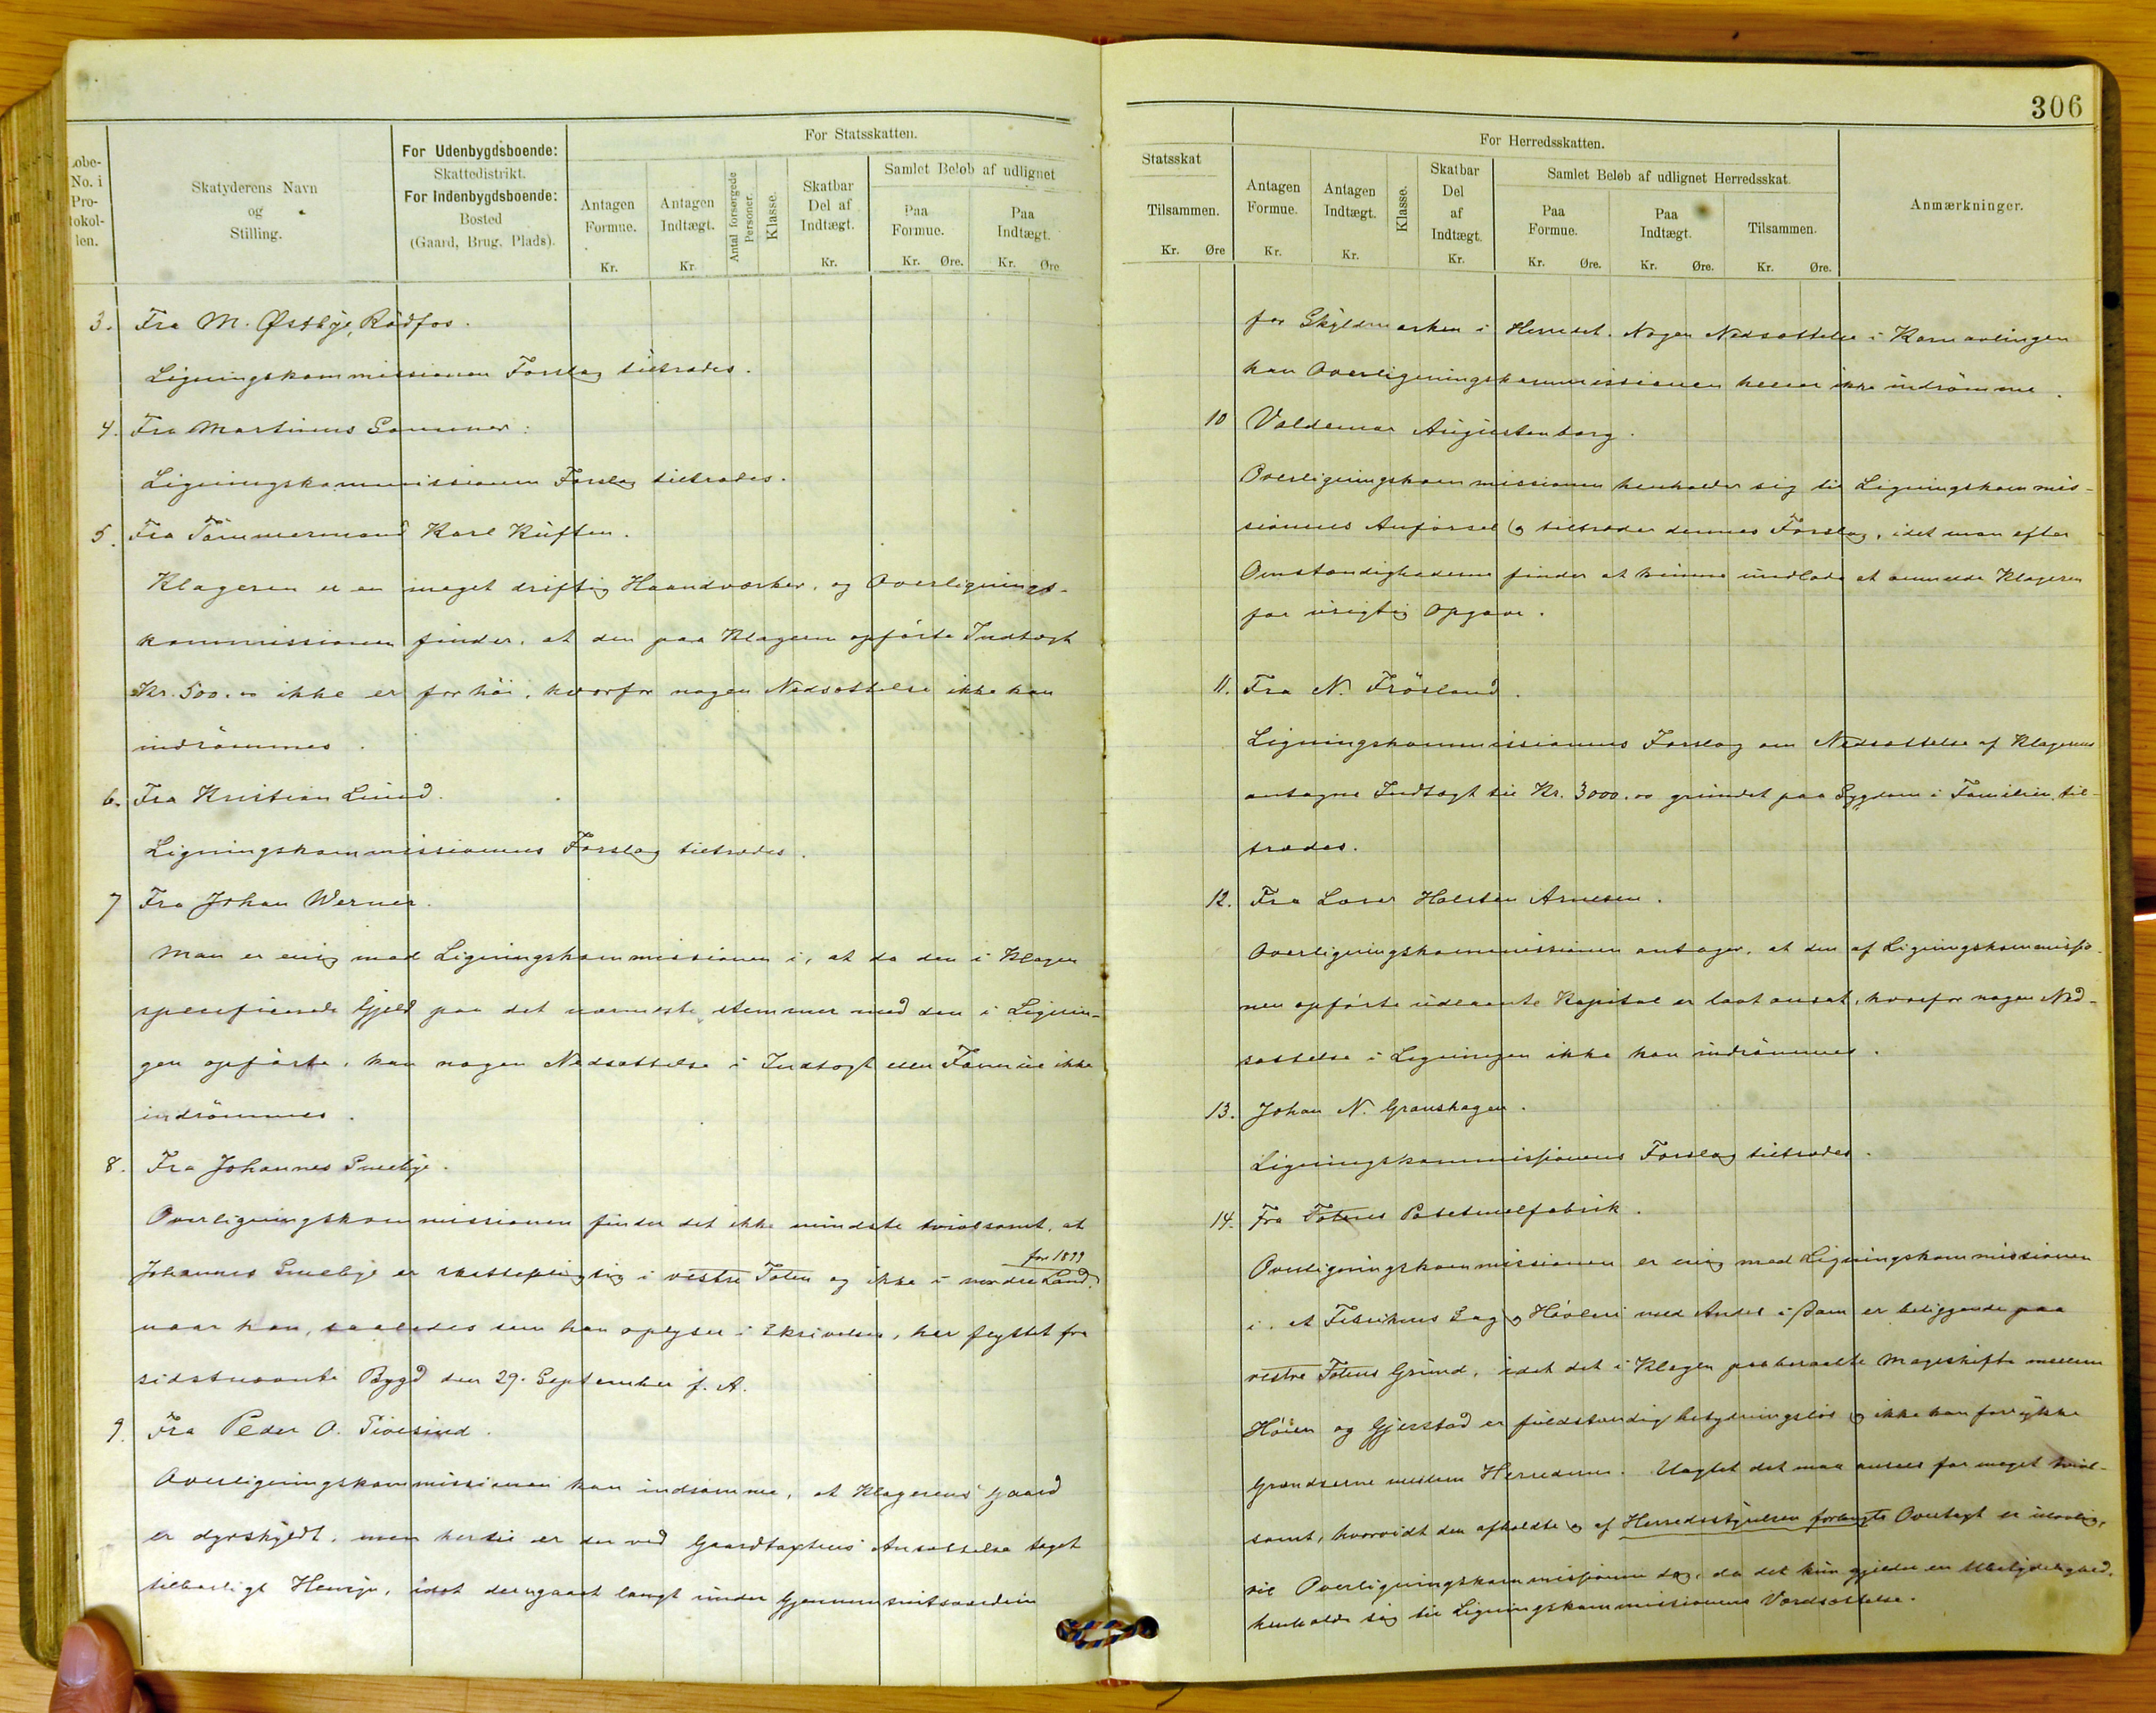 306
Løbe-
No. i
Pro-
tokol-
len.
Skatyderens Navn
og
Stilling.
For Udenbygdsboende:
Skattedistrikt.
For Indenbygdsboende:
Bosted
(Gaard, Brug, Plads).
For Statsskatten.
Antagen
Formue.
Kr.
Antagen
Indtægt.
Kr.
Antal forsørgede
Personer.
Klasse.
Skatbar
Del af
Indtægt.
Kr.
Samlet Beløb af udlignet
Paa
Formue.
Kr. Øre.
Paa
Indtægt.
Kr. Øre.
3. Fra M. Østbye, Rödfos.
Ligningskommissionen Forslag tiltrædes.
4. Fra Martinus Sommer:
Ligningskommissionen Forslag tiltrædes.
5. Fra Tömmermand Karl Kuften.
Klageren er en meget driftig Haandværker, og Overlignings-
kommissionen finder, at den paa Klageren opförte Indtægt
Kr. 500.00 ikke er for höi, hvorfor nogen Nedsættelse ikke kan
indrömmes.
6. Fra Kristian Lund.
Ligningskommissionens Forslag tiltrædes.
7 Fra Johan Werner.
Man er enig med Ligningskommissionen i, at da den i Klagen
specificerede Gjeld paa det nærmeste stemmer med den i Lignin-
gen opförte, kan nogen Nedsættelse i Indtægt eller Formue ikke
indrömmes.
8. Fra Johannes Smebye.
Overligningskommissionen finder det ikke mindste tvivlsomt, at
for 1899
Johannes Smebye er skattepligtig i vestre Toten og ikke i nordre Land,
naar han, saaledes som han oplyser i Skrivelsen, har flyttet fra
sidstnævnte Bygd den 29. September f. A.
9. Fra Peder O. Tivesind.
Overligningskommissionen kan indrömme, at Klagerens Gaard
er dyrskyldt, men hertil er der ved Gaardtaxtens Ansættelse taget
tilbørligt Hensyn, idet den gaaet langt under Gjennemsnitsværdien
Statsskat
Tilsammen.
Kr. Øre
For Herredsskatten.
Antagen
Formue.
Kr.
Antagen
Indtægt.
Kr.
Klasse.
Skatbar
Del
af
Indtægt.
Kr.
Samlet Beløb af udlignet Herredsskat.
Paa
Formue.
Kr. Øre.
Paa
Indtægt.
Kr. Øre.
Tilsammen.
Kr. Øre.
Anmærkninger.
for Skyldmarken i Herredet. Nogen Nedsættelse i Kornavlingen
kan Overligningskommissionen heller ikke indrömme.
10 Valdemar Augustenborg.
Overligningskommissionen henholder sig til Ligningskommis-
sionens Anförsel og tiltræder dennes Forslag, idet man efter
Omstændighederne finder at kunne undlade at anmelde Klageren
for urigtig Opgave.
11. Fra N. Frösland.
Ligningskommissionens Forslag om Nedsættelse af Klagerens
antagne Indtægt til Kr. 3000.00 grundet paa Sygdom i Familien til-
trædes.
12. Fra Halsten Arnesen.
Overligningskommissionen antager, at den af Ligningskommissio-
nen opförte udlaante Kapital er lavt ansat, hvorfor nogen Ned-
sættelse i Ligningen ikke kan indrömmes.
13. Johan N. Granshagen.
Ligningskommissionens Forslag tiltrædes.
14. Fra Totens Potetmelfabrik.
Overligningskommissionen er enig med Ligningskommissionen
i, at Fabrikens Sag og Hövleri med Andel i Dam er beliggende paa
vestre Totens Grund, idet det i Klagen paaberaabte Mageskifte mellem
Höien og Gjerstad er fuldstændig betydningslös og ikke kan forrykke
Grændserne mellem Herrederne. Uagtet det maa ansees for meget tvivl-
somt, hvorvidt den afholdte og af Herredsstyrelsen forlangte Overtaxt er ulovlig,
vil Overligningskommissionen dog, da det kun gjelder en Ubetydelighed,
henholde sig til Ligningskommissionens Værdsættelse.